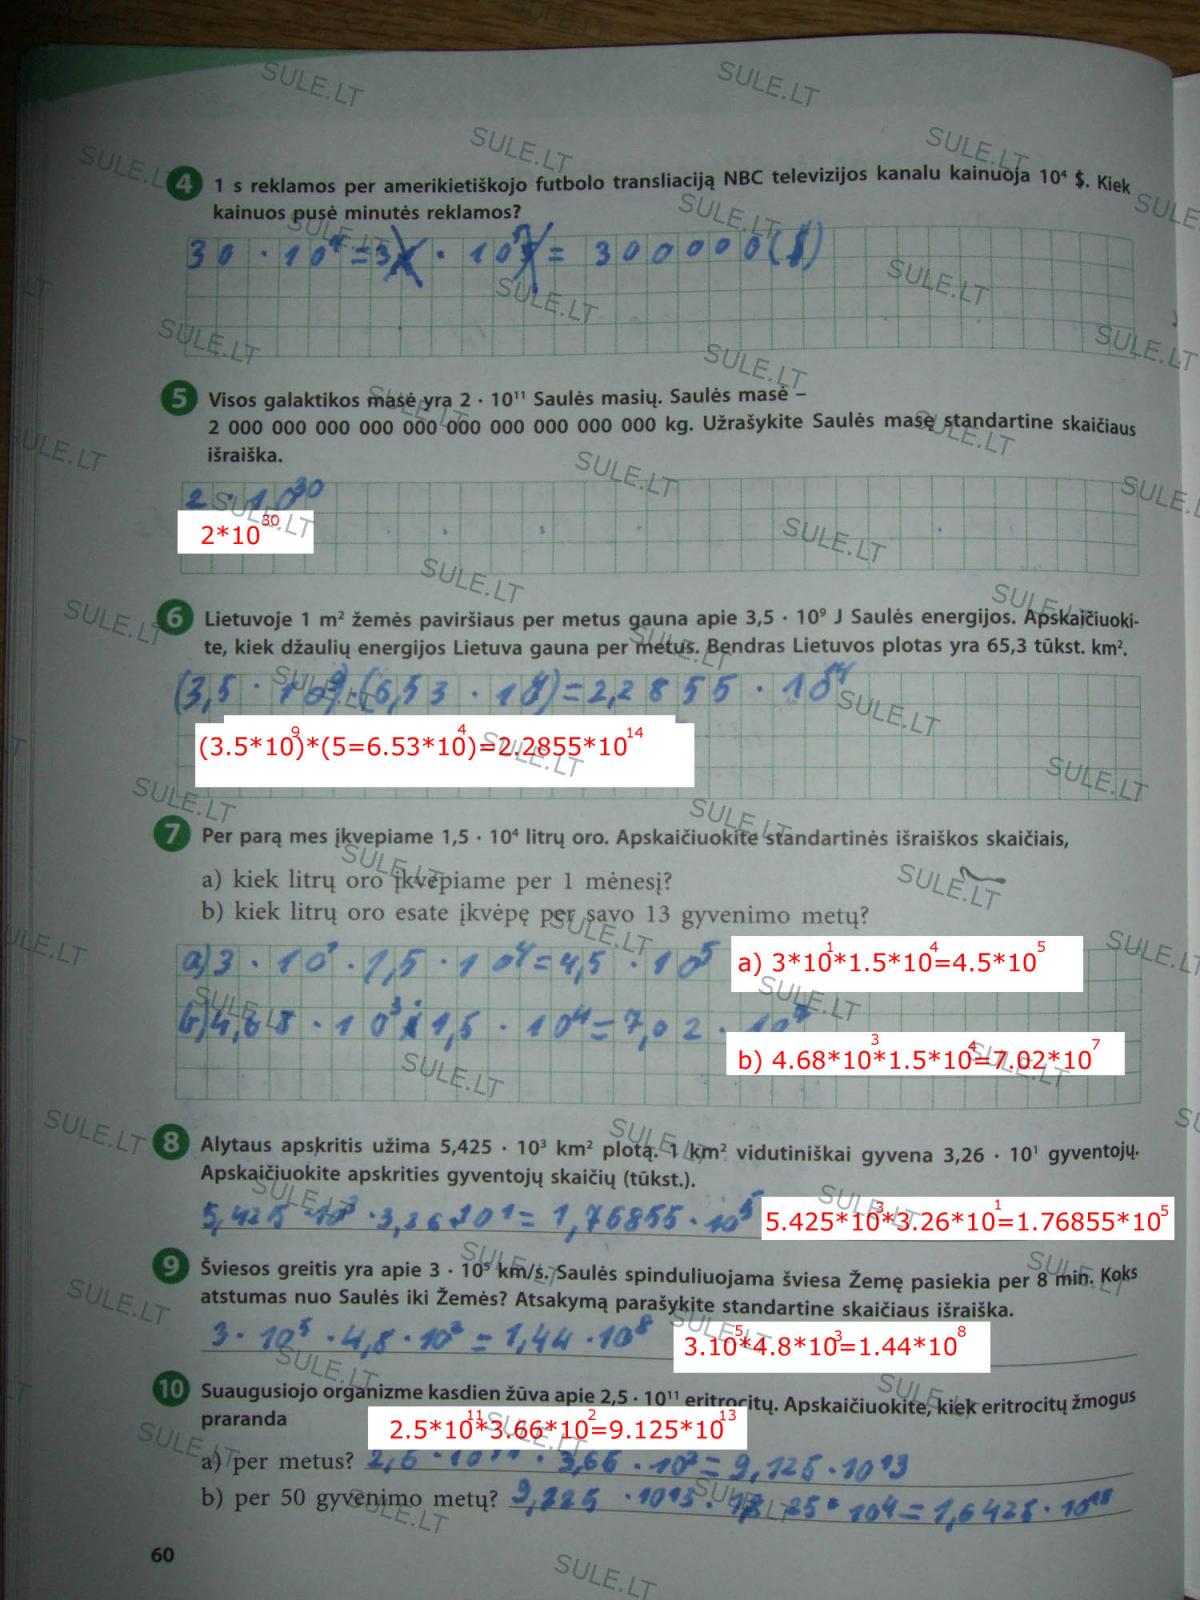 4 1 s reklamos per amerikietiškojo futbolo transliaciją NBC televizijos kanalu kainuoja 10⁴ $. Kiek
kainuos pusė minutės reklamos?
30 · 10⁴ = 3 · 10⁵ = 300000($)
5 Visos galaktikos masė yra 2 · 10¹¹ Saulės masių. Saulės masė –
2 000 000 000 000 000 000 000 000 000 000 kg. Užrašykite Saulės masę standartine skaičiaus
išraiška.
2 · 10³⁰
2*10³⁰
6 Lietuvoje 1 m² žemės paviršiaus per metus gauna apie 3,5 · 10⁹ J Saulės energijos. Apskaičiuoki-
te, kiek džaulių energijos Lietuva gauna per metus. Bendras Lietuvos plotas yra 65,3 tūkst. km².
(3,5 · 10⁹)·(6,53 · 10⁴)=2,2855 · 10¹⁴
(3.5*10⁹)*(5=6.53*10⁴)=2.2855*10¹⁴
7 Per parą mes įkvepiame 1,5 · 10⁴ litrų oro. Apskaičiuokite standartinės išraiškos skaičiais,
a) kiek litrų oro įkvepiame per 1 mėnesį?
b) kiek litrų oro esate įkvėpę per savo 13 gyvenimo metų?
a) 3 · 10¹ · 1,5 · 10⁴ = 4,5 · 10⁵ a) 3*10¹*1.5*10⁴=4.5*10⁵
b) 4,68 · 10³ · 1,5 · 10⁴ = 7,02 · 10⁷
b) 4.68*10³*1.5*10⁴=7.02*10⁷
8 Alytaus apskritis užima 5,425 · 10³ km² plotą. 1 km² vidutiniškai gyvena 3,26 · 10¹ gyventojų.
Apskaičiuokite apskrities gyventojų skaičių (tūkst.).
5,425 · 10³ · 3,26 · 10¹ = 1,76855 · 10⁵ 5.425*10³*3.26*10¹=1.76855*10⁵
9 Šviesos greitis yra apie 3 · 10⁵ km/s. Saulės spinduliuojama šviesa Žemę pasiekia per 8 min. Koks
atstumas nuo Saulės iki Žemės? Atsakymą parašykite standartine skaičiaus išraiška.
3 · 10⁵ · 4,8 · 10² = 1,44 · 10⁸ 3.10⁵*4.8*10³=1.44*10⁸
10 Suaugusiojo organizme kasdien žūva apie 2,5 · 10¹¹ eritrocitų. Apskaičiuokite, kiek eritrocitų žmogus
praranda
2.5*10¹¹*3.66*10²=9.125*10¹³
a) per metus? 2,5 · 10¹¹ · 3,66 · 10² = 9,125 · 10¹³
b) per 50 gyvenimo metų? 9,225 · 10¹³ · 10⁴ = 1,6425 · 10¹⁸
60
SULE.LT